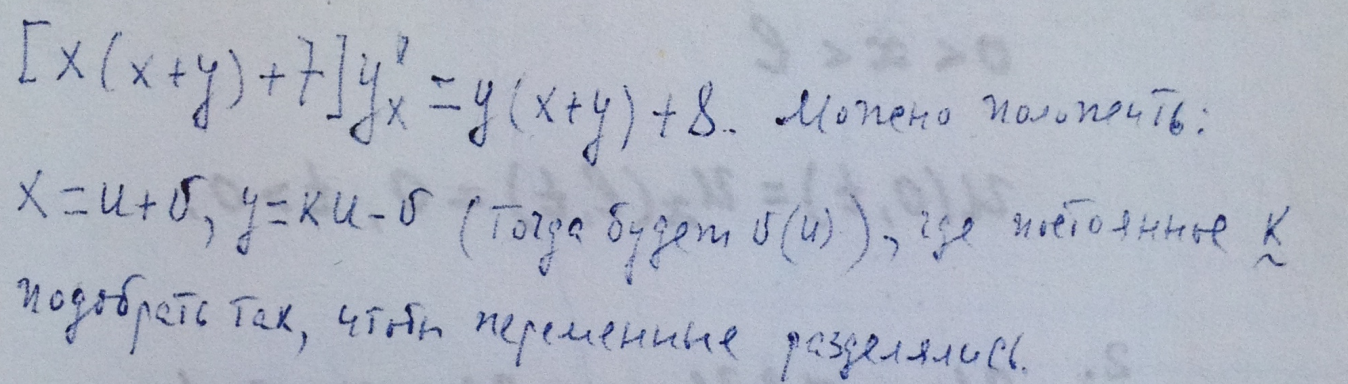 [x(x+y)+7]y'ₓ = y(x+y)+8. Можно положить:
x = u+v, y = ku-v (тогда будет v(u)), где постоянное k
подобрать так, чтобы переменные разделялись.